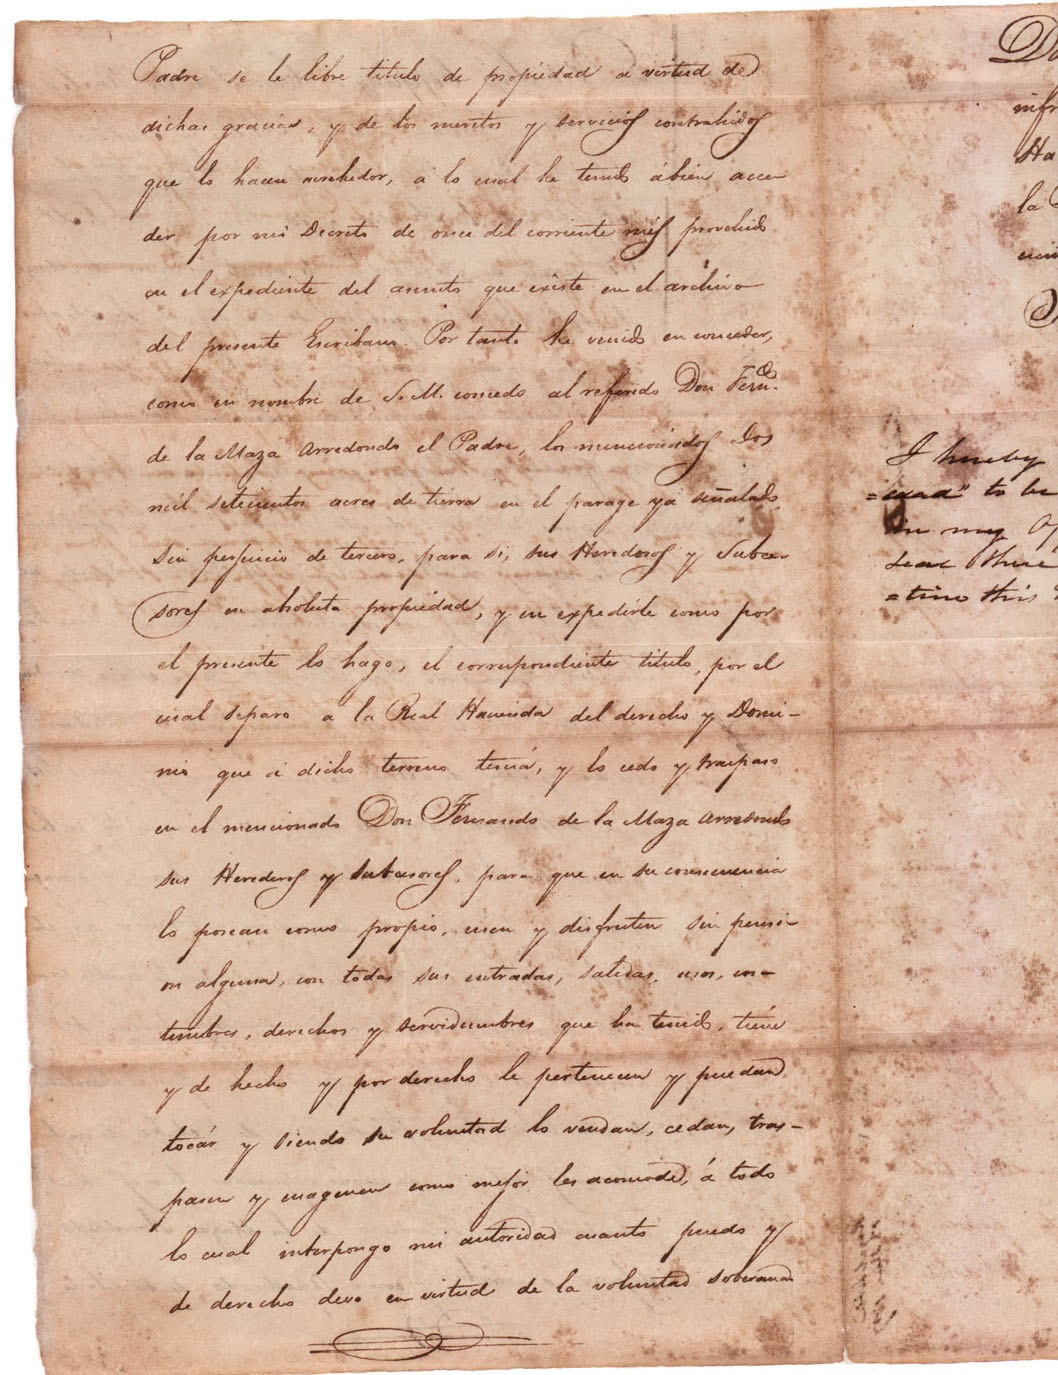 Padre se le libre titulo de propiedad a virtud de
dichas gracias, y de los meritos y servicios contrahidos
que lo hacen acrehedor, á lo cual he tenido ábien acce-
der por mi Decreto de once del corriente més provehido
en el expediente del asunto que existe en el archivo
del presente Escribano. Por tanto he venido en conceder,
como en nombre de S. M. concedo al referido Don Ferndo.
de la Maza Arredondo el Padre, los mencionados dos
mil setecientos acres de tierra en el parage ya señalado,
sin perjuicio de tercero, para si, sus Herederos y Subce-
sores en absoluta propiedad, y en expedirle como por
el presente lo hago, el correspondiente titulo, por el
cual separo a la Real Hacienda del derecho y Domi-
nio que á dicho terreno tenía, y lo cedo y traspaso
en el mencionado Don Fernando de la Maza Arredondo
sus Herederos y subcesores, para que en su consecuencia
lo posean como propio, usen y disfruten sin pensi-
on alguna, con todas sus entradas, salidas, usos, cos-
tumbres, derechos y servidumbres que ha tenido, tiene
y de hecho y por derecho le pertenecen y puedan
tocár y siendo su voluntad lo vendan, cedan, tras-
pasen y enagenen como mejor les acomode, á todo
lo cual interpongo mi autoridad cuanto puedo y
de derecho devo en virtud de la voluntad soberana
Do
infr
Ha
la
I hereby
=exed" to be
in my Of
seal there
=tine this